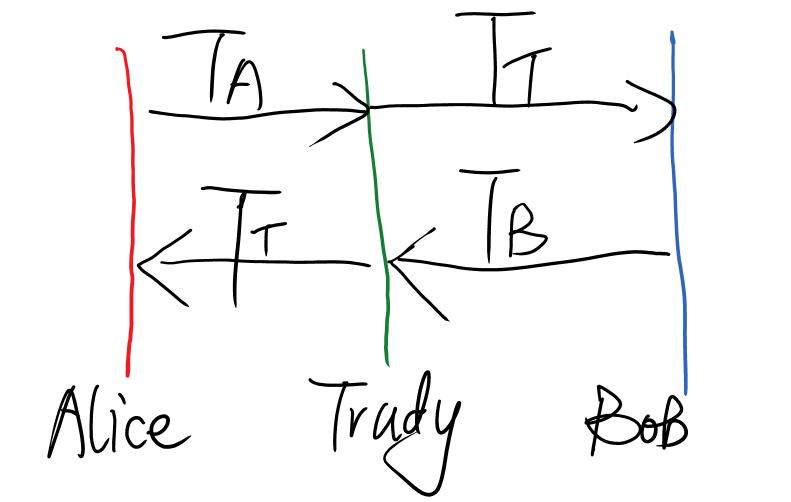 T_A T_T
T_T T_B
Alice Trudy BoB